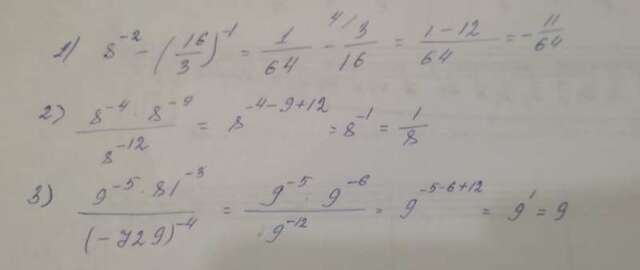 1) 8^{-2} - (16/3)^{-1} = 1/64 - 4/ 3/16 = (1-12)/64 = - 11/64
2) (8^{-4} · 8^{-9})/8^{-12} = 8^{-4-9+12} = 8^{-1} = 1/8
3) (9^{-5} · 81^{-3})/(-729)^{-4} = (9^{-5} · 9^{-6})/9^{-12} = 9^{-5-6+12} = 9^{1} = 9